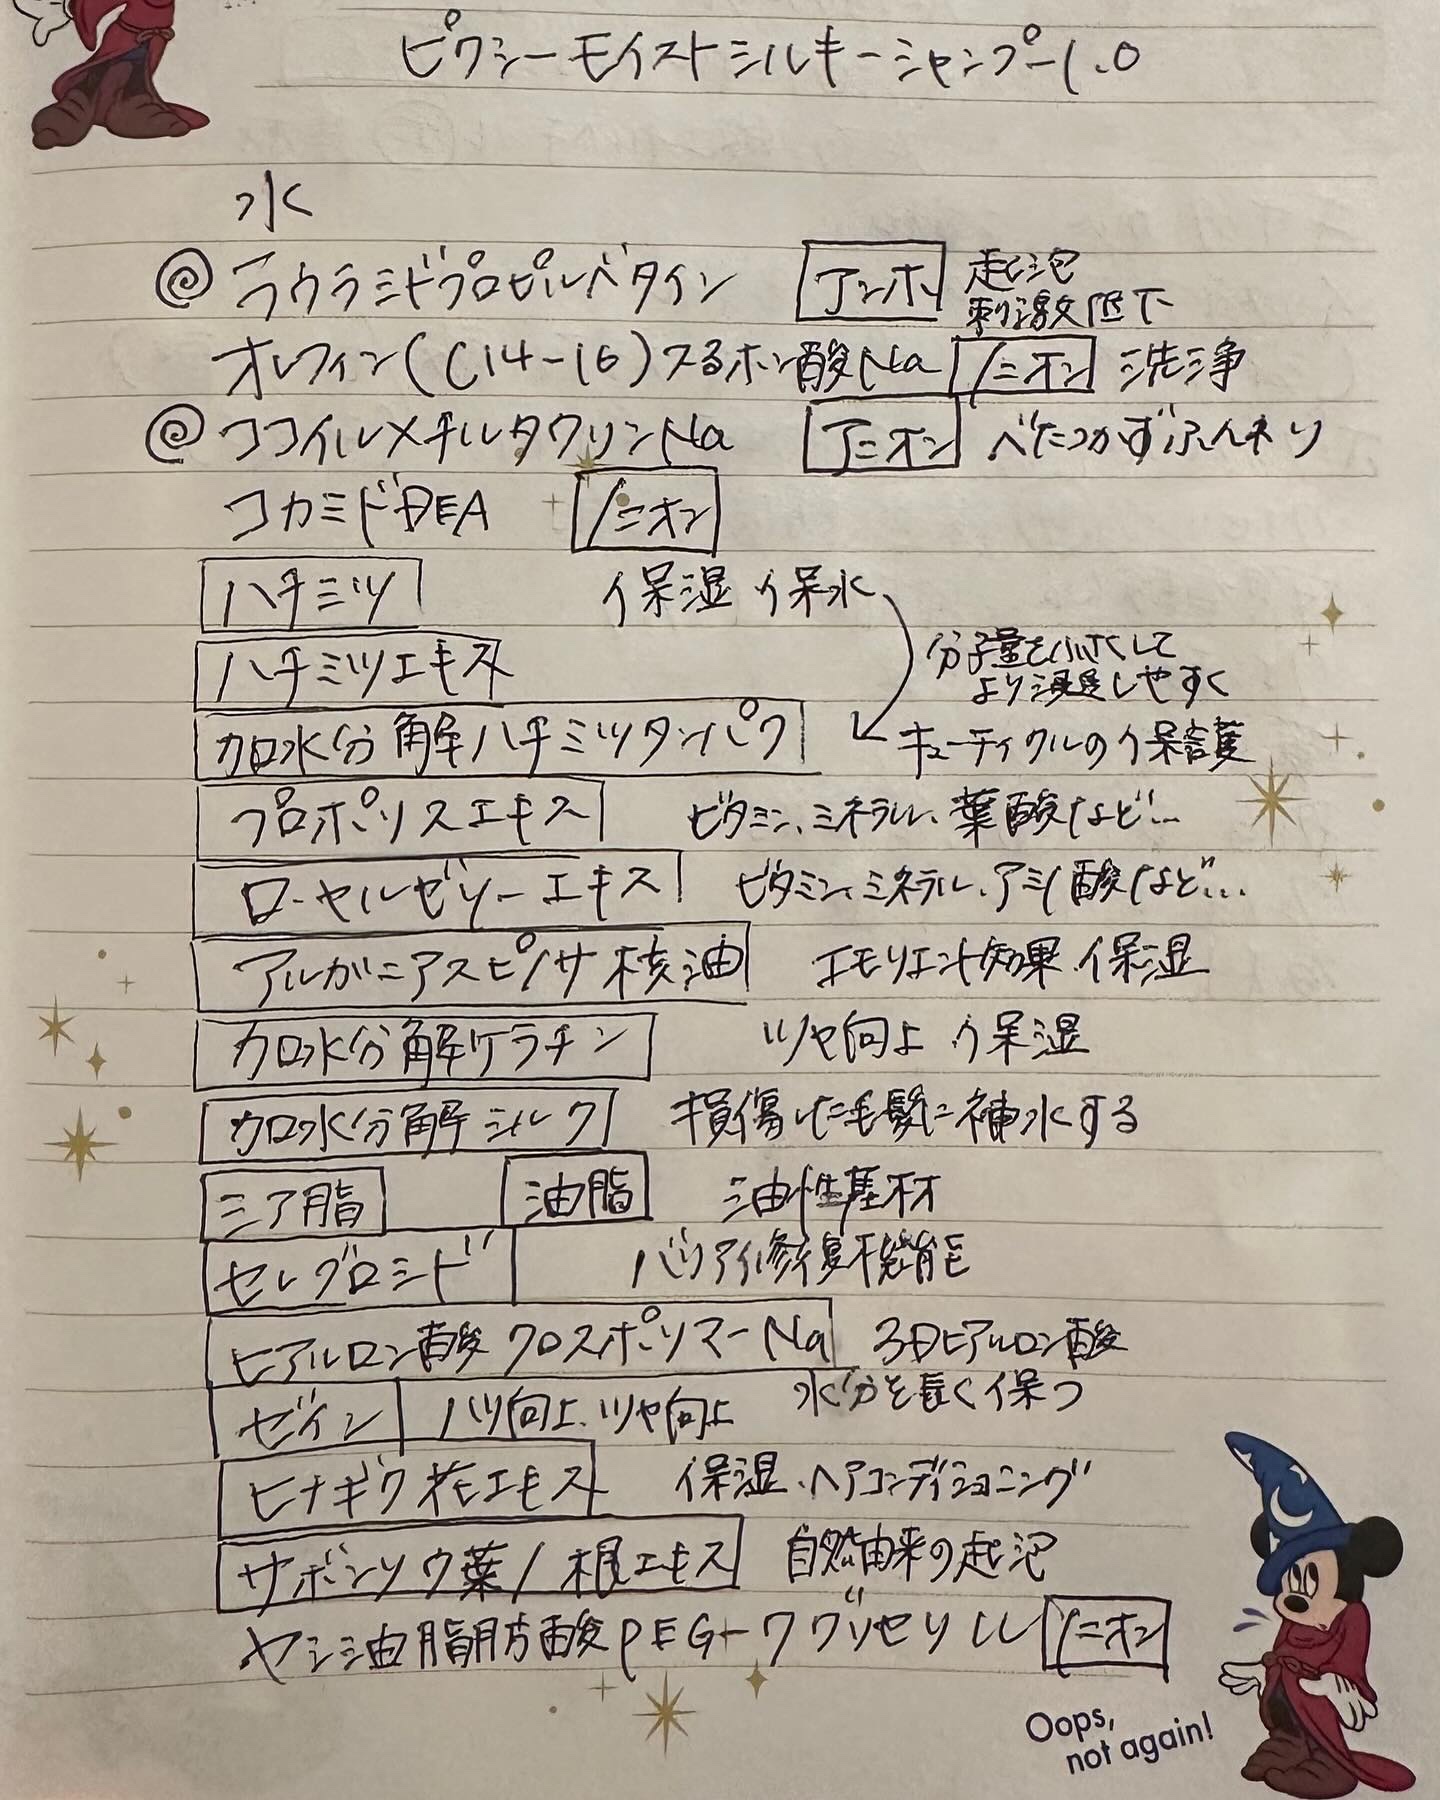 ピクシーモイストシルキーシャンプー1.0
水
ラウラミドプロピルベタイン アンホ 起泡
刺激低下
オレフィン(C14-16)スるホン酸Na ノニオン 洗浄
ココイルメチルタウリンNa アニオン べたつかずふんわり
コカミドDEA ノニオン
ハチミツ 保湿 保水
ハチミツエキス 分子量を小さくして
より浸透しやすく
加水分解ハチミツタンパク キューティクルの保護
プロポリスエキス ビタミン、ミネラル、葉酸など…
ローヤルゼリーエキス ビタミン、ミネラル、アミノ酸など…
アルガニアスピノサ核油 エモリエント効果、保湿
加水分解ケラチン ツヤ向上 保湿
加水分解シルク 損傷した毛髪に補水する
シア脂 油脂 油性基材
セレブロシド バリア修復機能
ヒアルロン酸クロスポリマーNa 3Dヒアルロン酸
水分を長く保つ
ゼイン ハリ向上、ツヤ向上
ヒナギク花エキス 保湿、ヘアコンディショニング
サボンソウ葉/根エキス 自然由来の起泡
ヤシ油脂肪酸PEG-7グリセリル ノニオン
Oops,
not again!